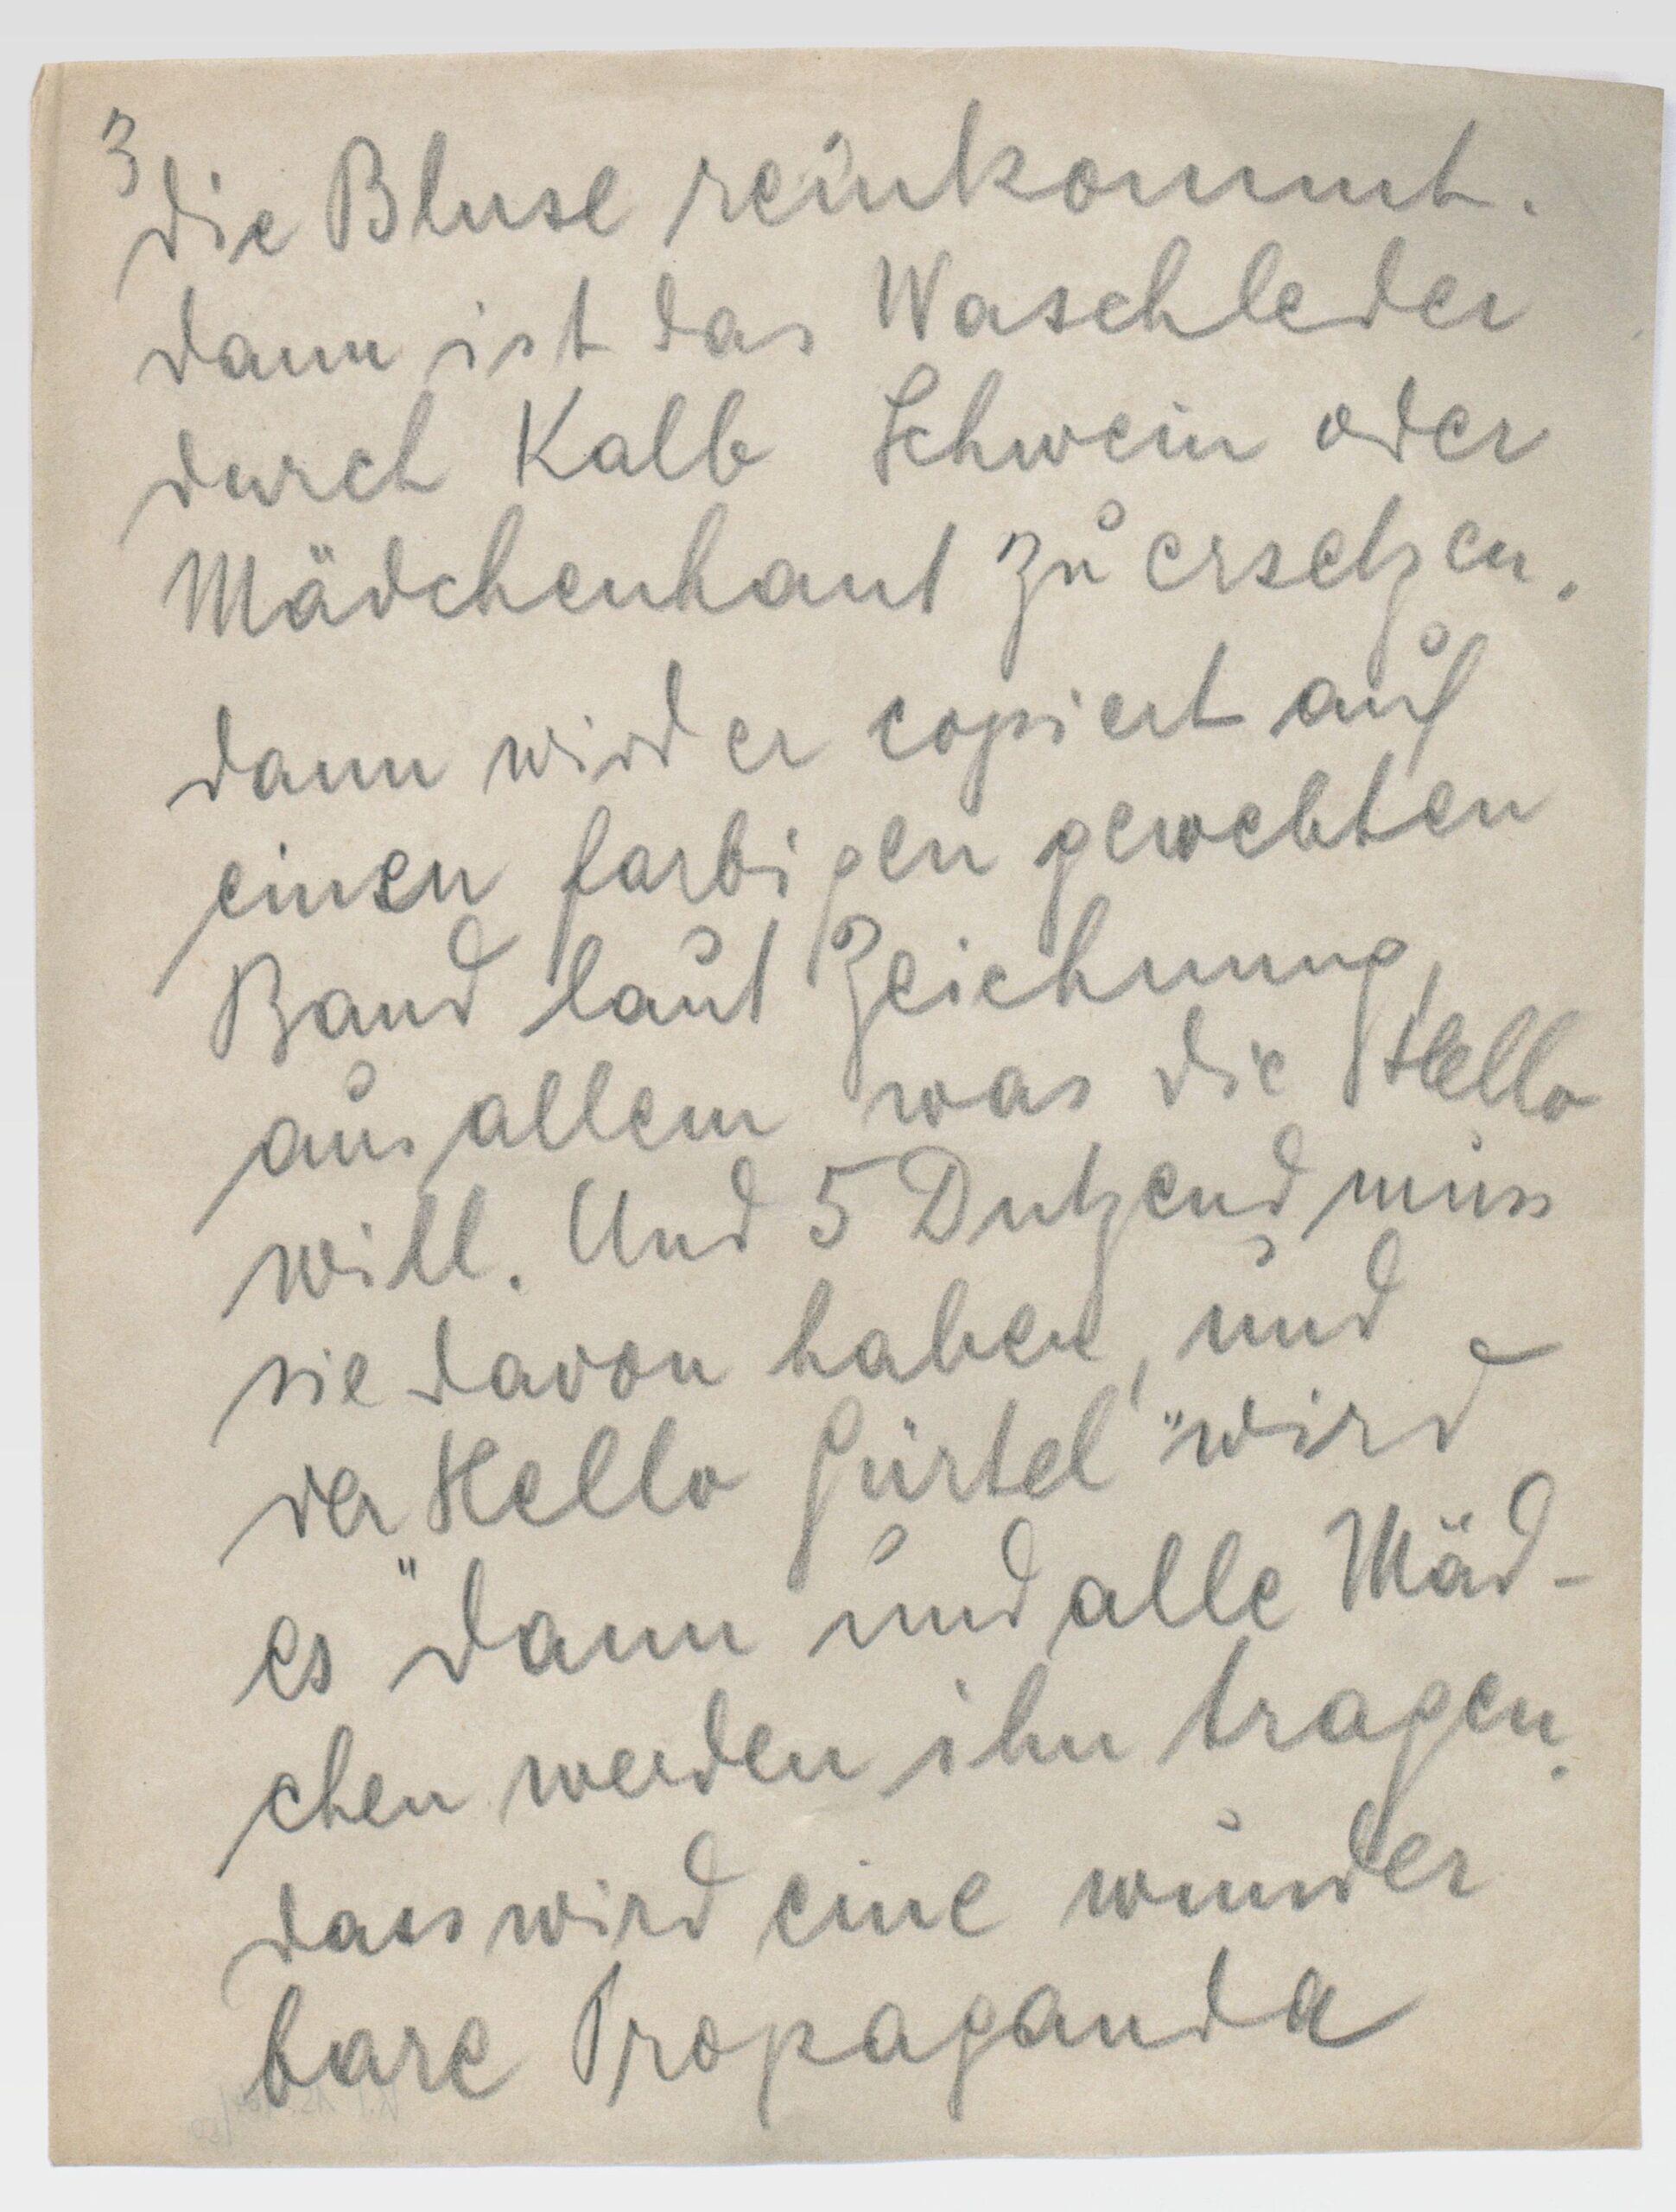 3
die Bluse reinkommt.
dann ist das Waschleder
durch Kalb Schwein oder
Mädchenhaut zu ersetzen.
dann wird er copiert auf
einen farbigen gewebten
Band laut Zeichnung,
aus allem was die Hello
will. Und 5 Dutzend muss
sie davon haben, und
der Hello Gürtel" wird
es "dann und alle Mäd-
chen werden ihn tragen.
dass wird eine wunder
bare Propaganda